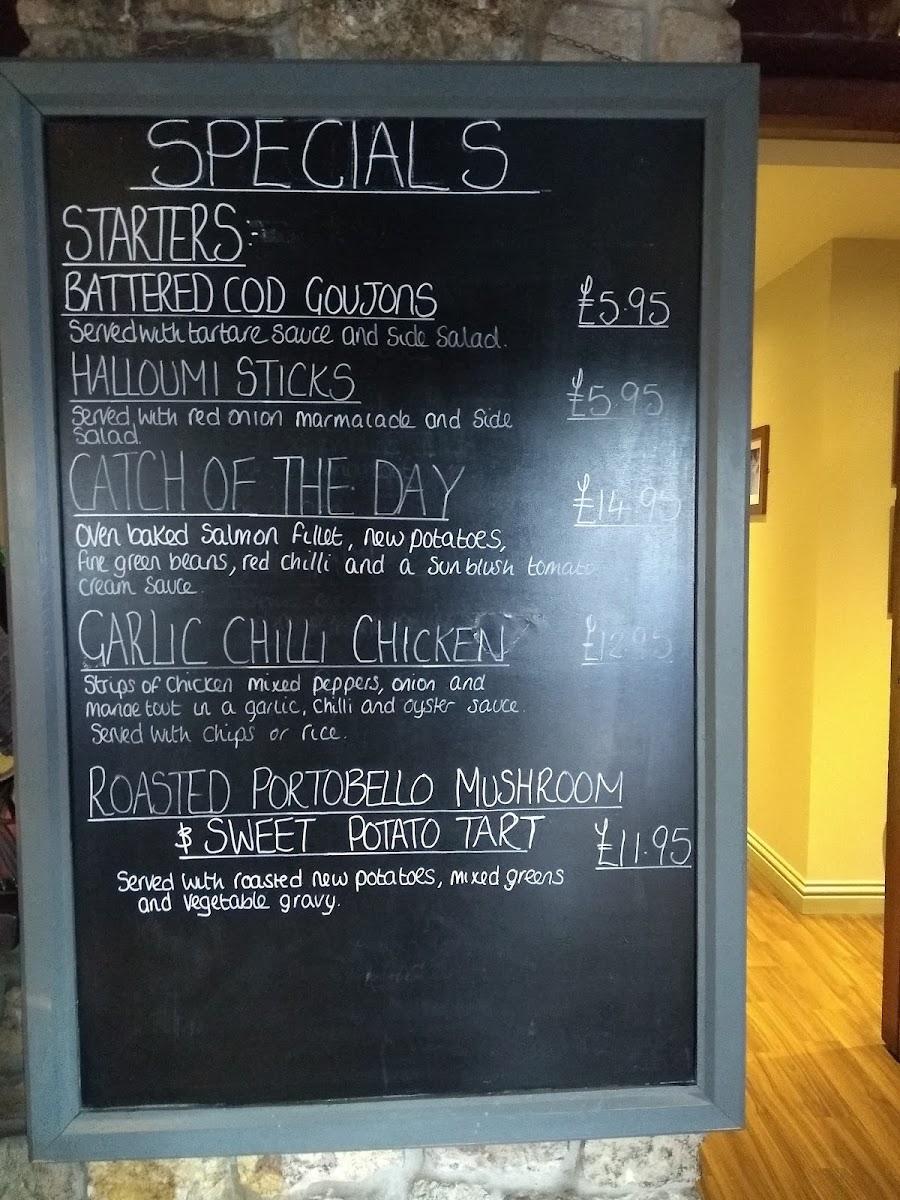 SPECIALS
STARTERS:-
BATTERED COD GOUJONS £5.95
Served with tartare sauce and side salad.
HALLOUMI STICKS £5.95
Served with red onion marmalade and side
salad.
CATCH OF THE DAY £14.95
Oven baked salmon fillet, new potatoes,
fine green beans, red chilli and a sunblush tomato
cream sauce.
GARLIC CHILLI CHICKEN £12.95
Strips of chicken mixed peppers, onion and
mangetout in a garlic, chilli and oyster sauce.
Served with chips or rice.
ROASTED PORTOBELLO MUSHROOM
& SWEET POTATO TART £11.95
Served with roasted new potatoes, mixed greens
and vegetable gravy.